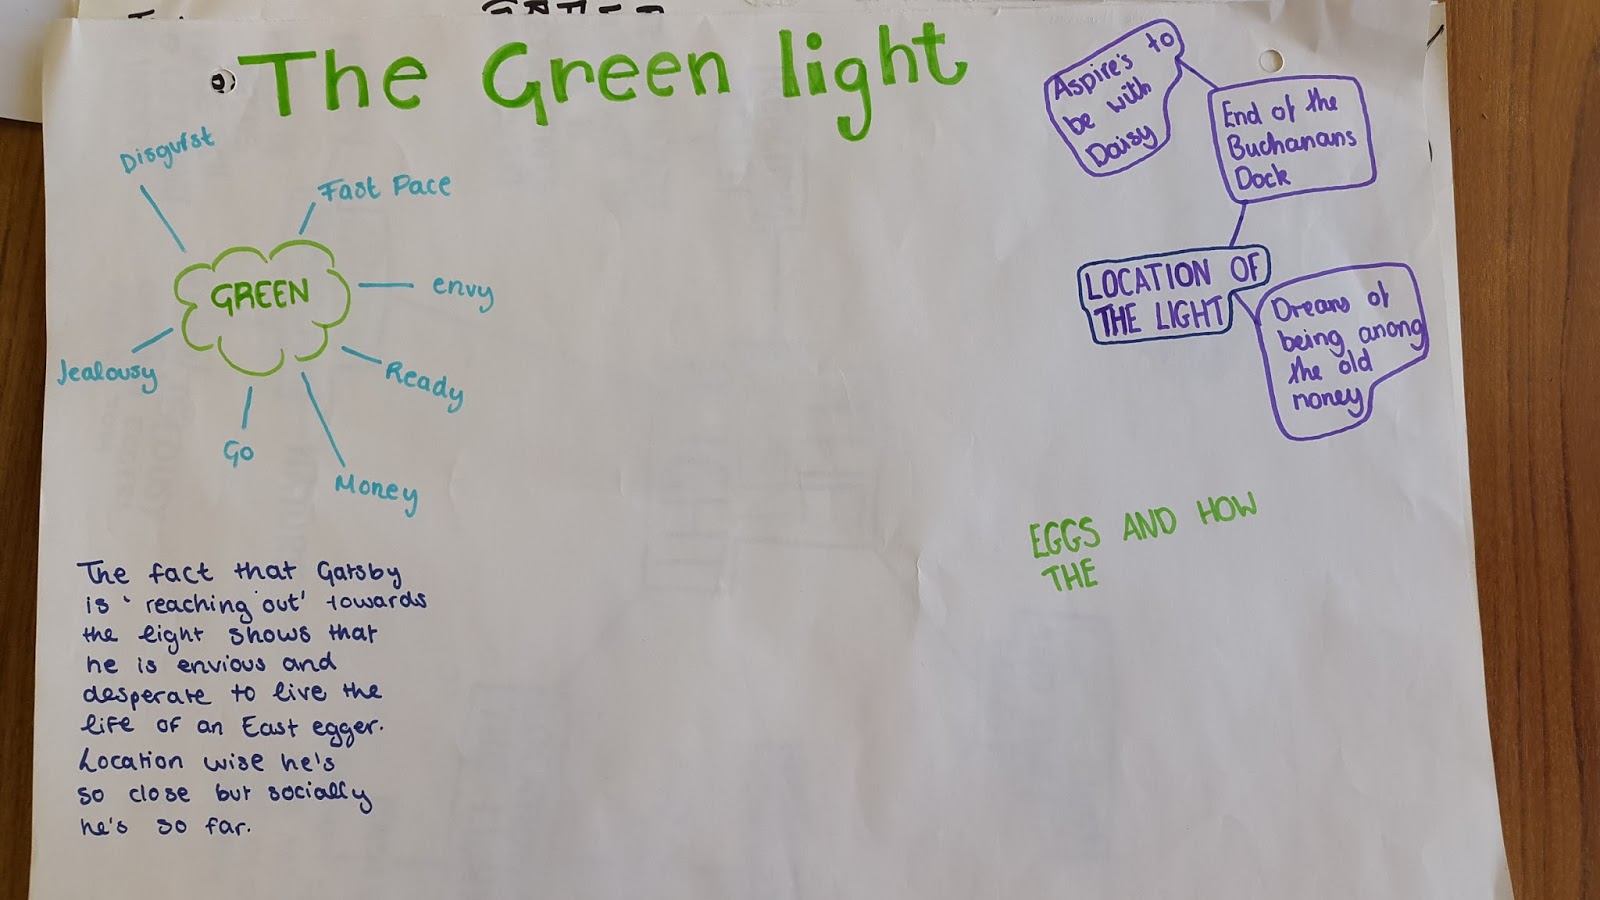 The Green light
Disgust
Fast Pace
envy
Ready
Money
Go
Jealousy
GREEN
The fact that Gatsby
is 'reaching out' towards
the light shows that
he is envious and
desperate to live the
life of an East egger.
Location wise he's
so close but socially
he's so far.
Aspire's to
be with
Daisy
End of the
Buchanans
Dock
LOCATION OF
THE LIGHT
Dreams of
being among
the old
money
EGGS AND HOW
THE